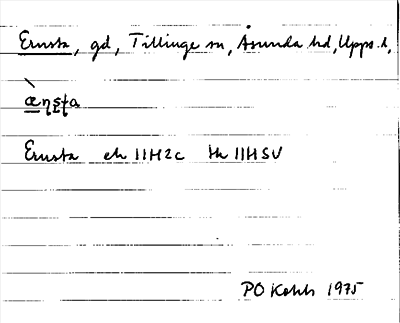 Ernsta, gd, Tillinge sn, Åsunda hd, Upps. l,
æ̀ṇṣṭa
Ernsta ek 11H2c tk 11HSV
PO Kohls 1975